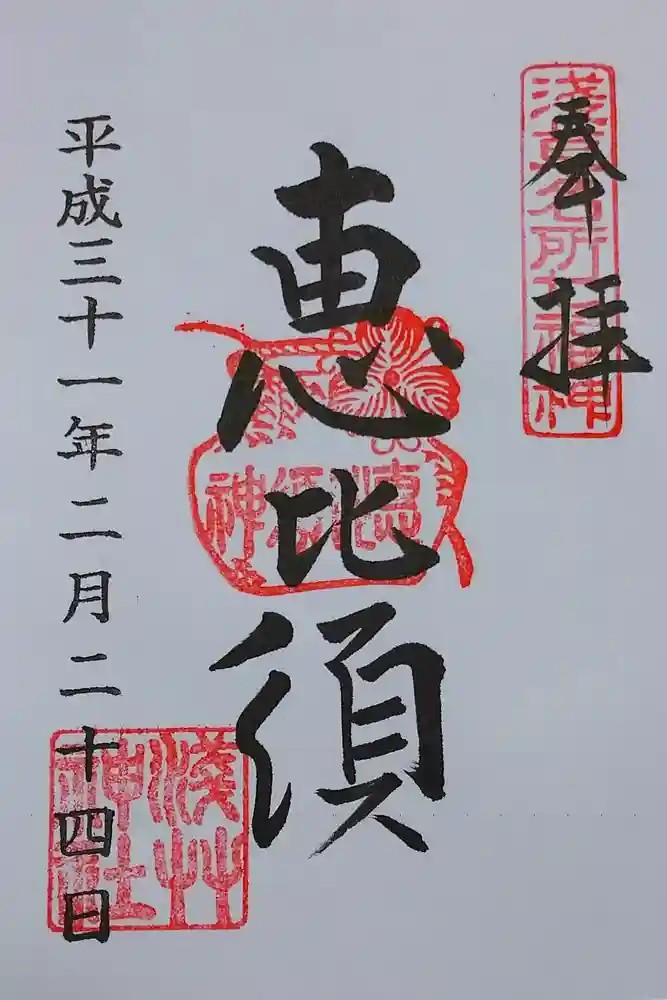 奉拝
浅草名所七福神
恵比須
恵比須神
平成三十一年二月二十四日
浅草神社